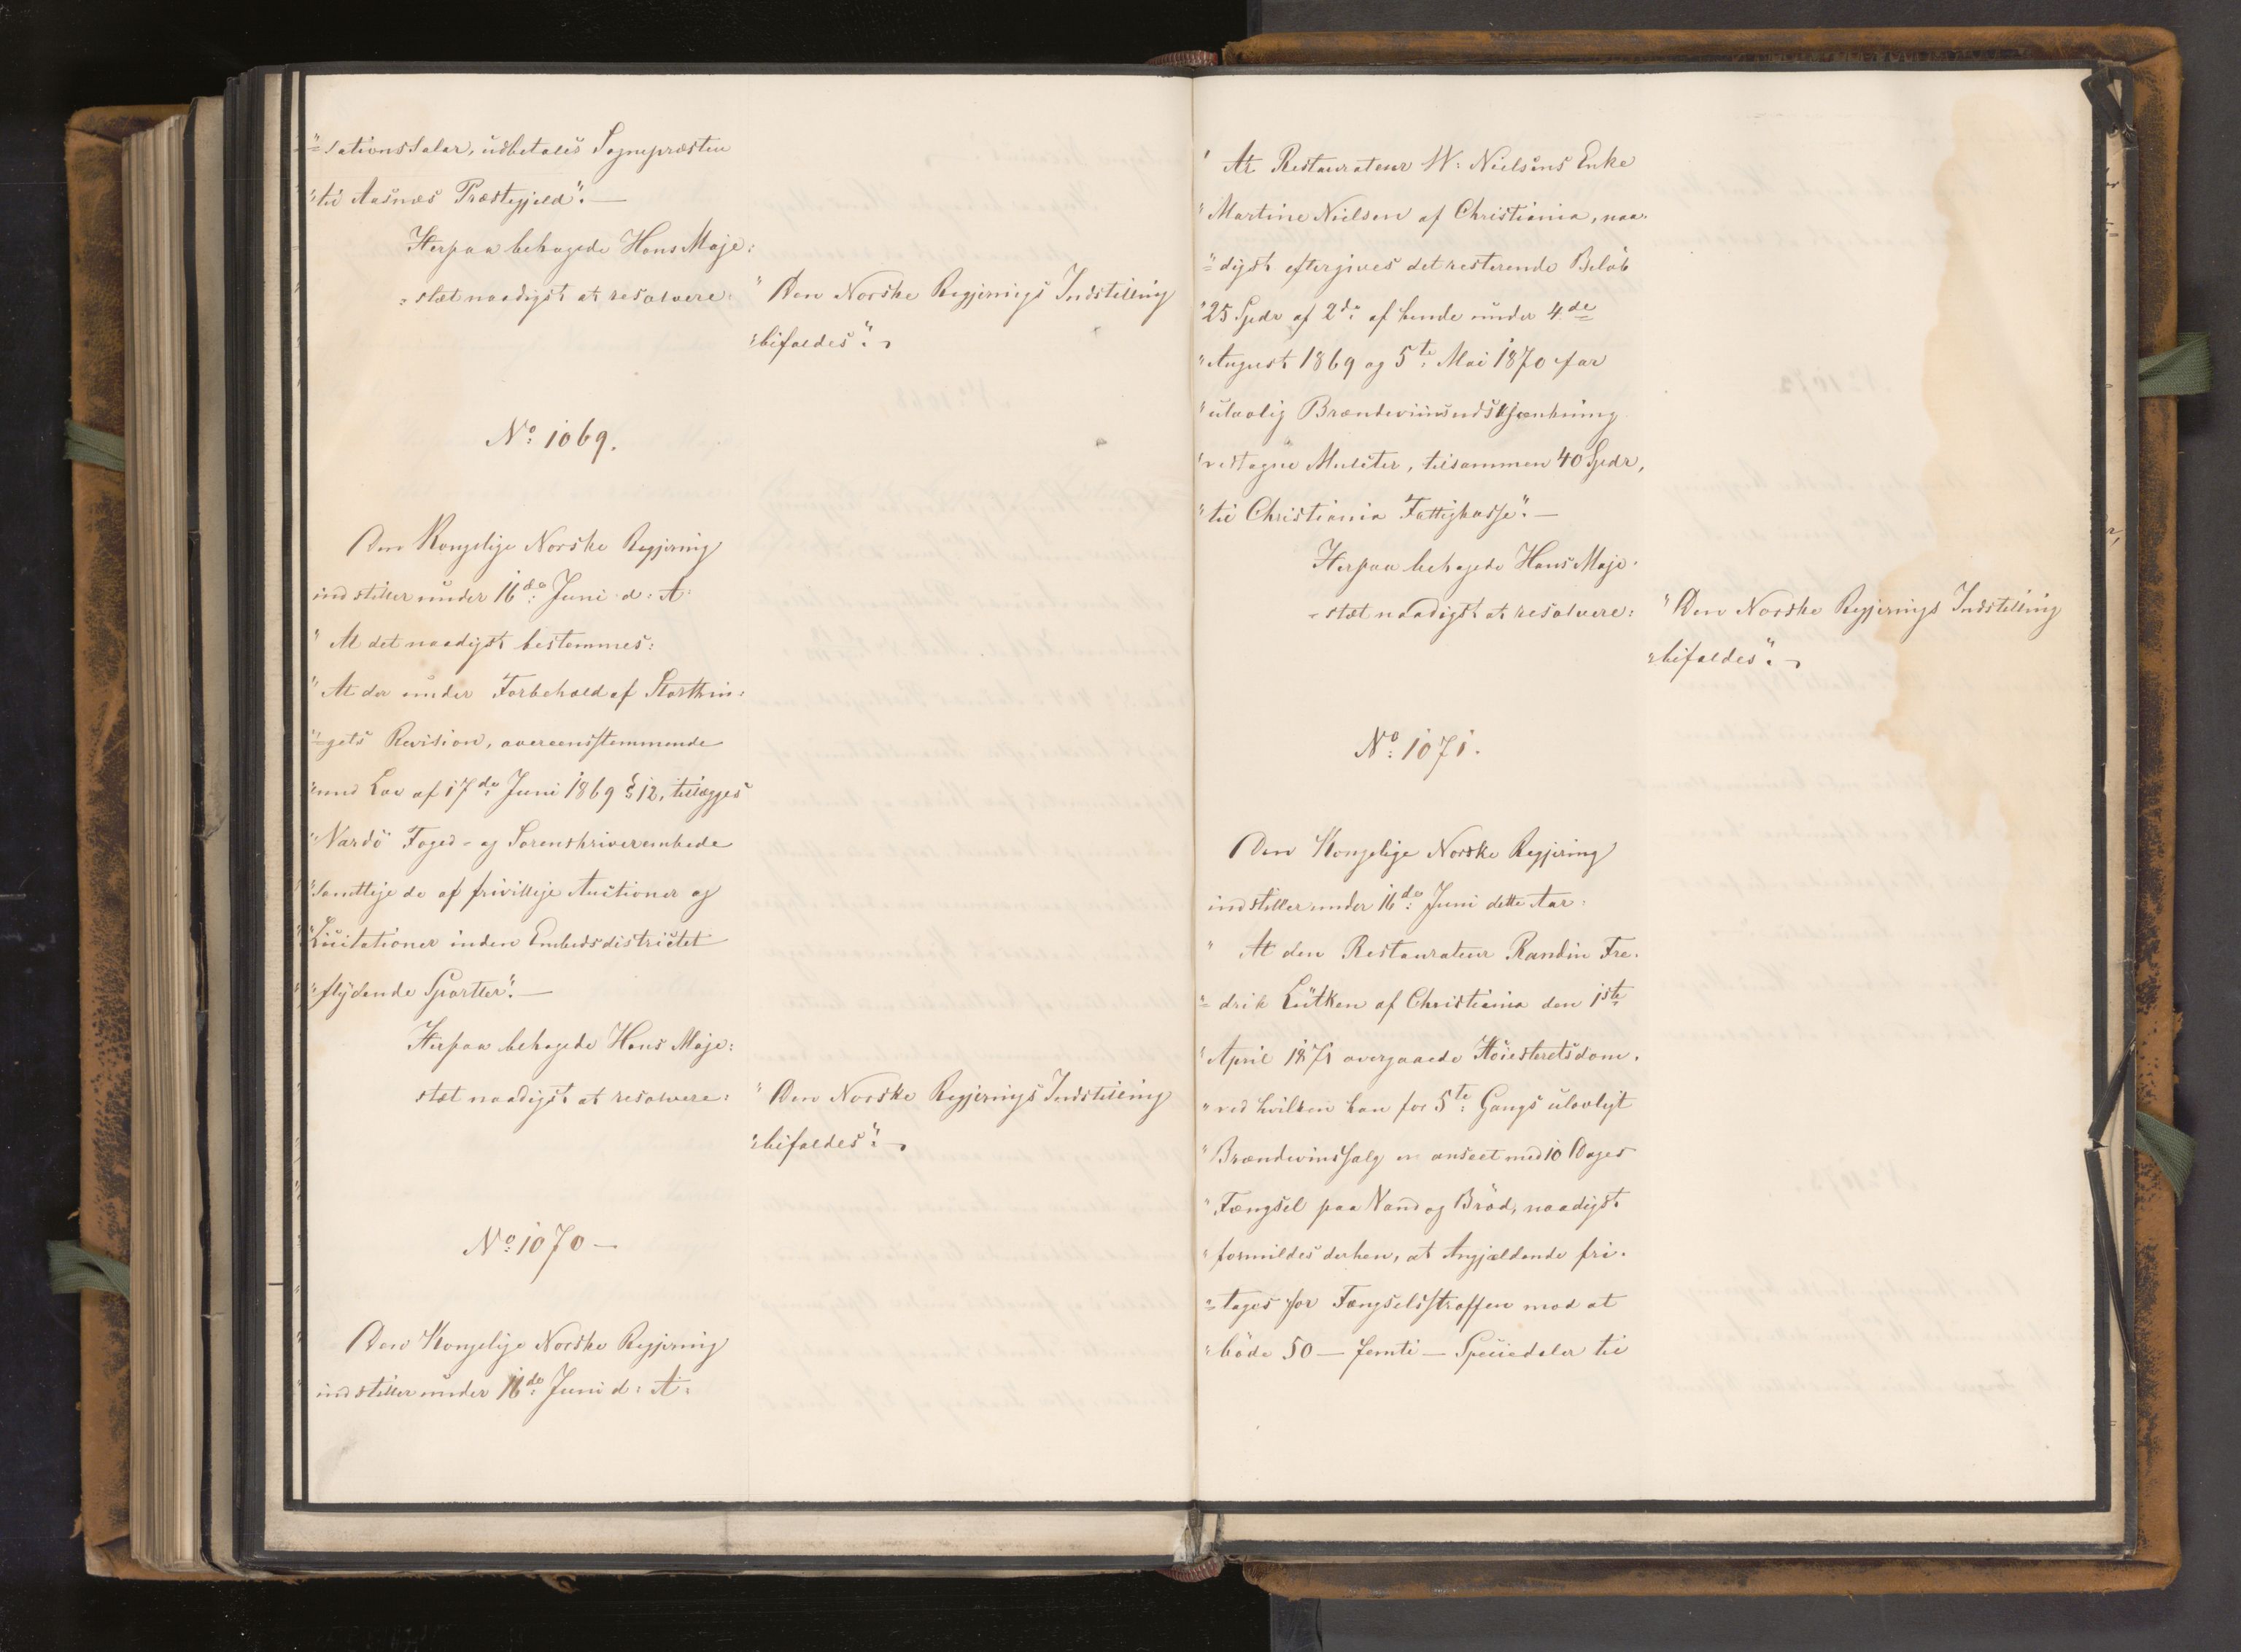 "=sationssalær, udbetales Sognepræsten
"til Aasnes Præstegjeld". —
Herpaa behagede Hans Maje:
=stæt naadigst at resolvere:
"Den Norske Regjerings Indstilling
"bifaldes".
No: 1069.
Den Kongelige Norske Regjering
indstiller under 16de: Juni d: A:
"At det naadigst bestemmes:
"At der under Forbehold af Storthin:
"=gets Revision, overeensstemmende
"med Lov af 17de: Juni 1869 § 12, tillægges
"Vardö Foged- og Sorenskriverembede
"samtlige de af frivillige Auctioner og
"Licitationer inden Embedsdistrictet
"flydende Sportler". —
Herpaa behagede Hans Maje:
stæt naadigst at resolvere:
"Den Norske Regjerings Indstilling
"bifaldes".
No: 1070 —
Den Kongelige Norske Regjering
indstiller under 16de: Juni d: A:
"At Restaurateur W: Nielsens Enke
"Martine Nielsen af Christiania, naa-
"=digst eftergives det resterende Beløb
"25 Spdr af 2de: af hende under 4de
"August 1869 og 5te: Mai 1870 for
"ulovlig Brændeviinsudskjænkning
"vedtagne Mulcter, tilsammen 40 Spdr,
"til Christiania Fattigkasse". —
Herpaa behagede Hans Maje-
=stæt naadigst at resolvere:
"Den Norske Regjerings Indstilling
"bifaldes".
No: 1071.
Den Kongelige Norske Regjering
indstiller under 16de: Juni dette Aar:
"At den Restaurateur Randin Fre-
"=drik Lütken af Christiania den 1ste
"April 1871 overgaaede Høiesteretsdom,
"ved hvilken han for 5te: Gangs ulovligt
"Brændeviinssalg er anseet med 10 Dages
"Fængsel paa Vand og Brød, naadigst
"formildes derhen, at Angjældende fri-
"=tages for Fængselsstraffen mod at
"bøde 50 — femti — Speciedaler til